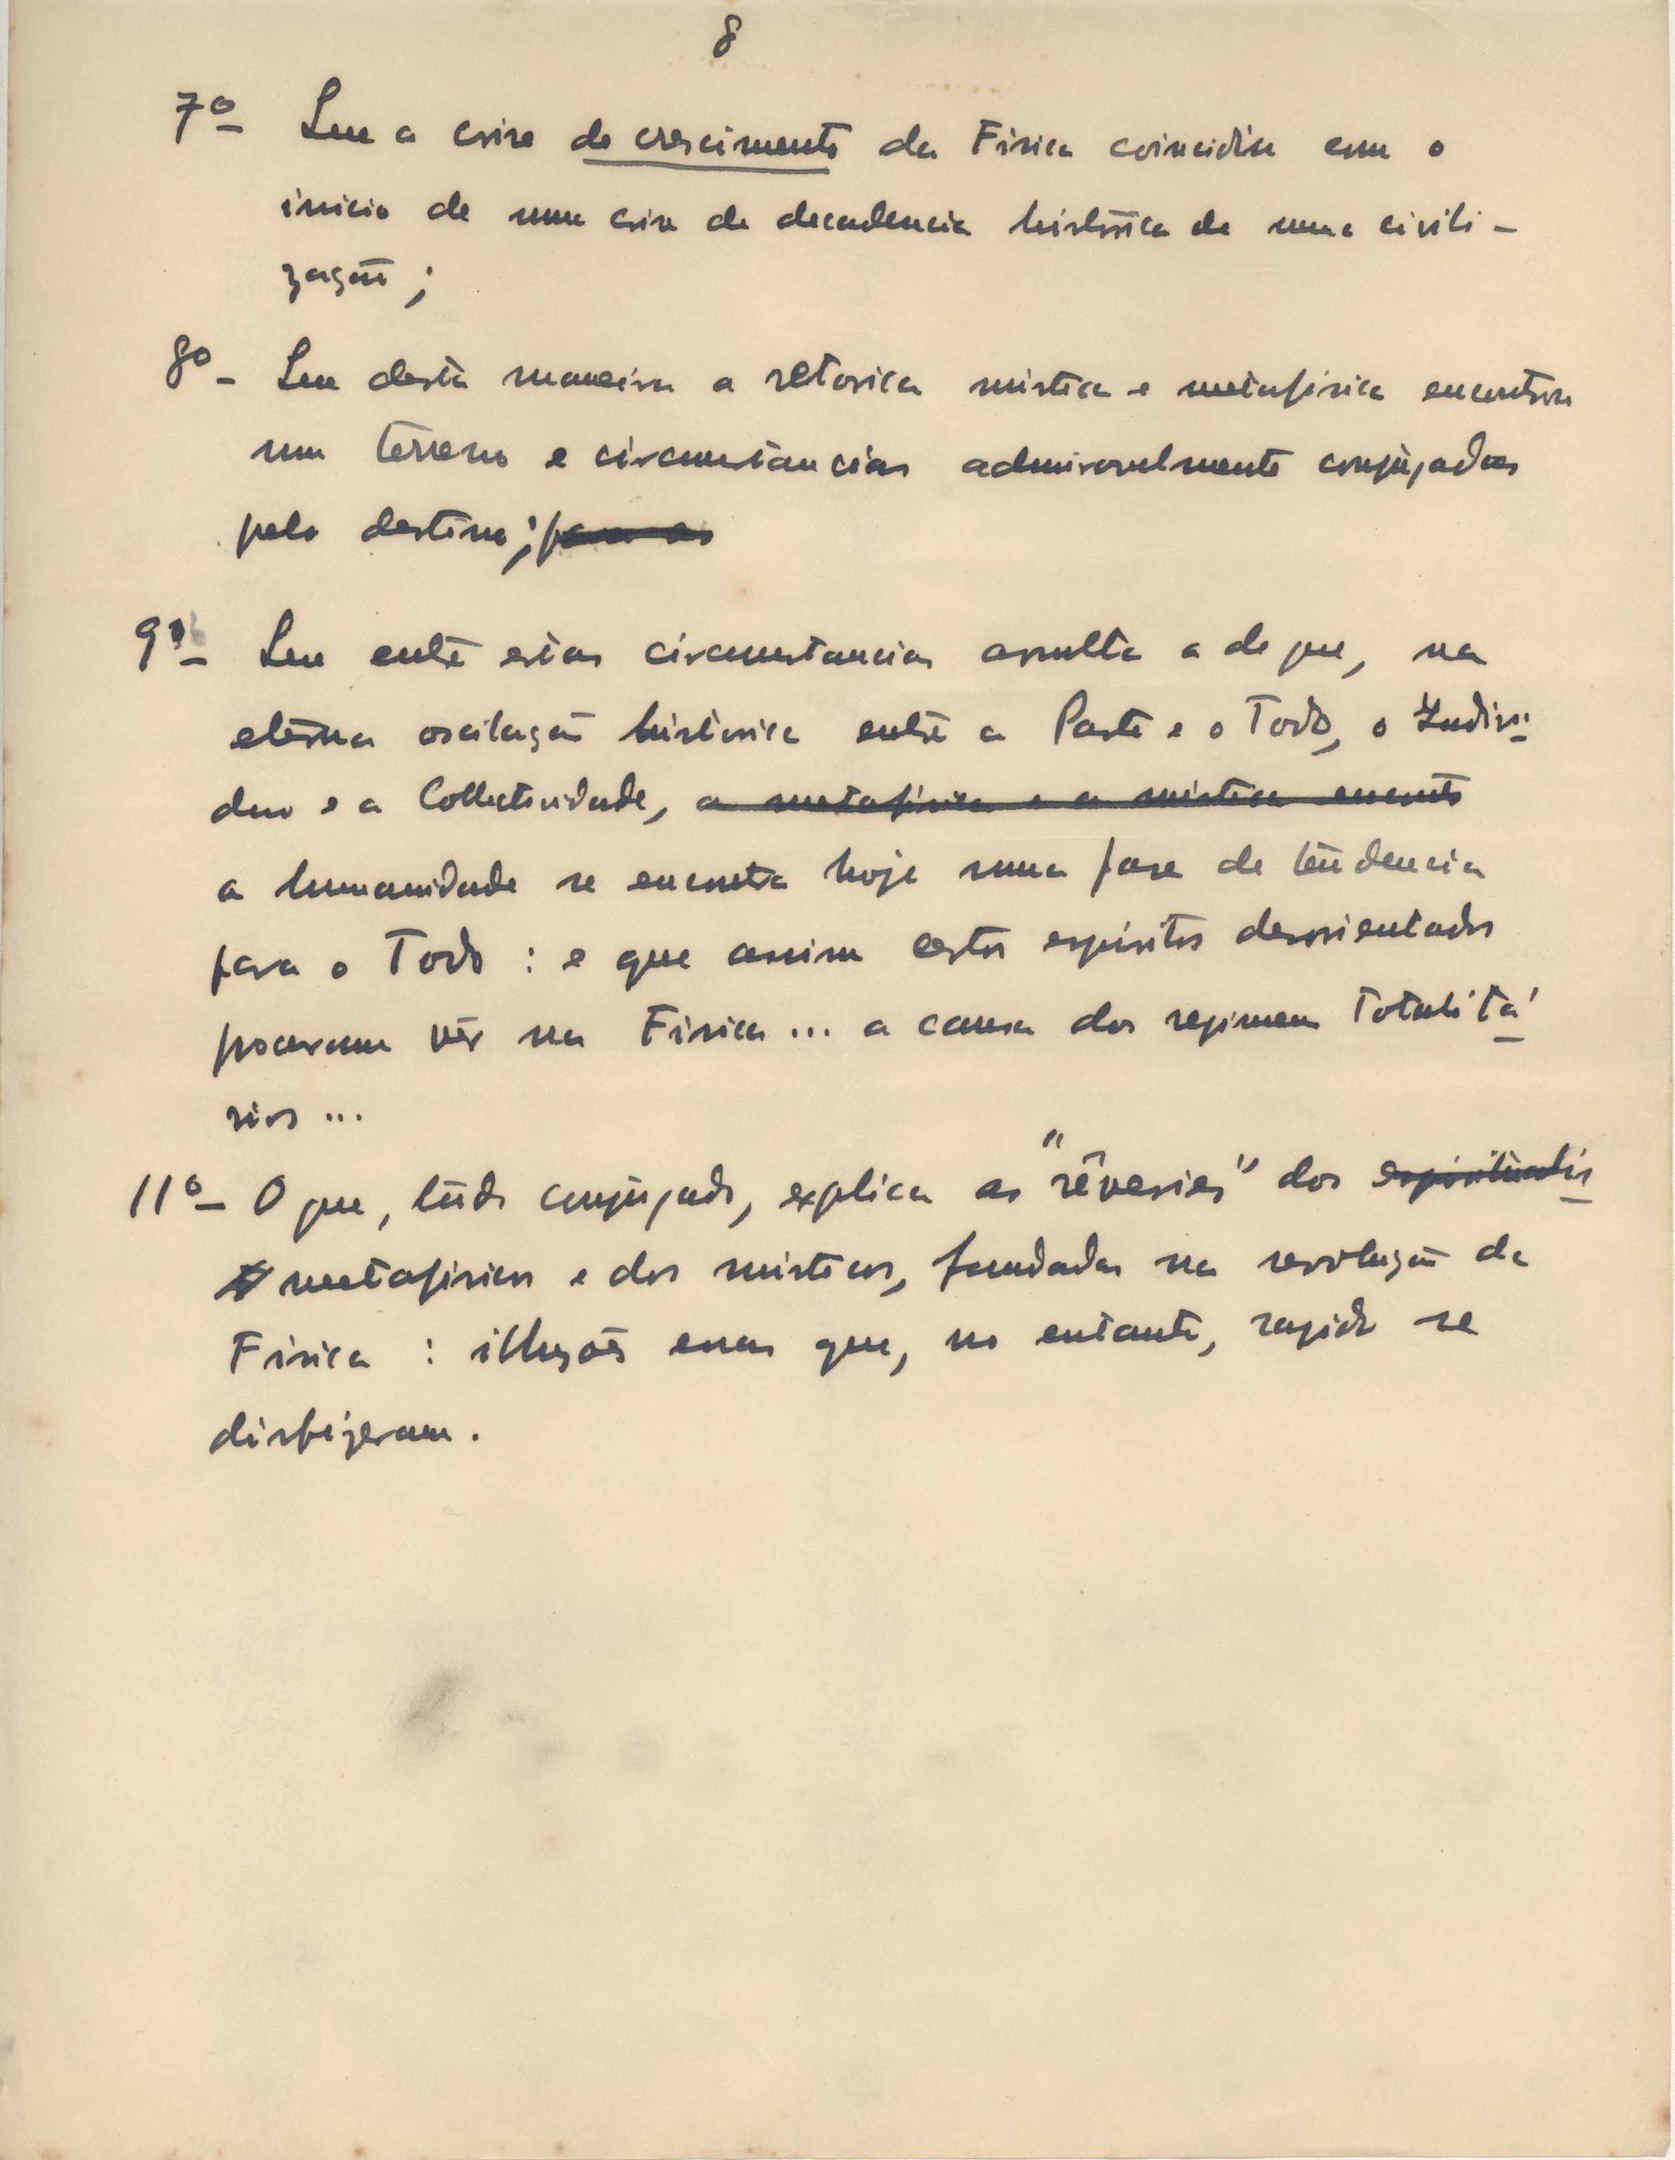 8
7º - Que a crise de crescimento da Fisica coincidiu com o
inicio de uma crise de decadencia histórica de uma civili-
zação ;
8º - Que desta maneira a retorica mistica e metafisica encontrou
um terreno e circunstancias admiravelmente conjugadas
pelo destino; para as
9º - Que entre estas circunstancias avulta a de que, na
eterna oscilação histórica entre a Parte e o Todo, o Indivi-
duo e a Collectividade, a metafisica e a mistica encontr
a humanidade se encontra hoje numa fase de tendencia
para o Todo : e que assim certos espiritos desorientados
procuram vêr na Fisica ... a causa dos regimens Totalitá-
rios ...
11º - O que, tudo conjugado, explica as "rêveries" dos espiritualis-
metafisicos e dos misticos, fundadas na revolução da
Fisica : illusões essas que, no entanto, rapido se
disfizeram.